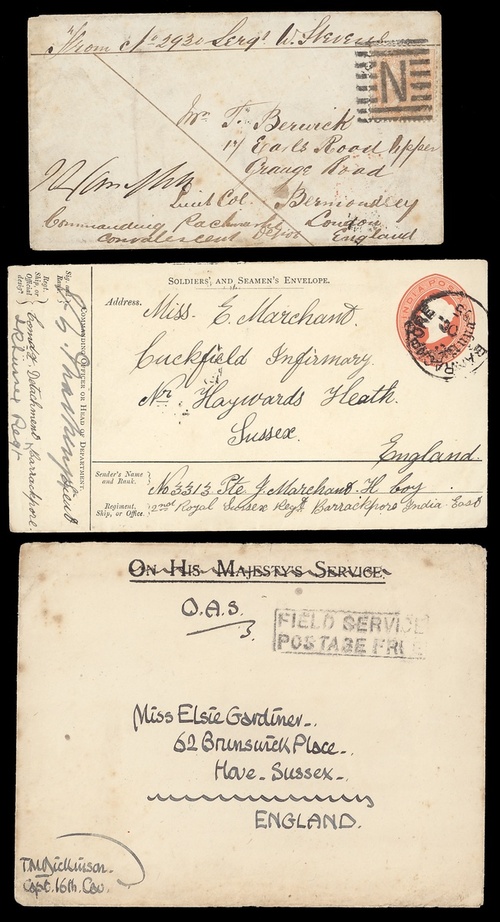 From No 2930 Sergt W. Stevens
N
Mr T. Berwick
17 Earls Road Upper
Grange Road
Bermondsey
London
England
Lieut Col.
Commanding
Convalescent Depot
SOLDIERS' AND SEAMEN'S ENVELOPE.
INDIA POS
Address.
Miss. E. Marchant.
Cuckfield Infirmary.
Nr Haywards Heath.
Sussex.
England.
Sender's Name and Rank.
No 3313 Pte J. Marchant. H. Coy.
Regiment, Ship, or Office.
2nd Royal Sussex Regt Barrackpore India East
COMMANDING OFFICER OR HEAD OF DEPARTMENT.
Regt. Ship, or Official desigt.
Comdg. Detachment Barrackpore.
Sussex Regt
ON HIS MAJESTY'S SERVICE.
O.A.S.
FIELD SERVICE
POSTAGE FREE
Miss Elsie Gardiner-.
62 Brunswick Place-.
Hove-Sussex-.
ENGLAND.
T.M. Dickinson.
Capt. 16th. Cav.